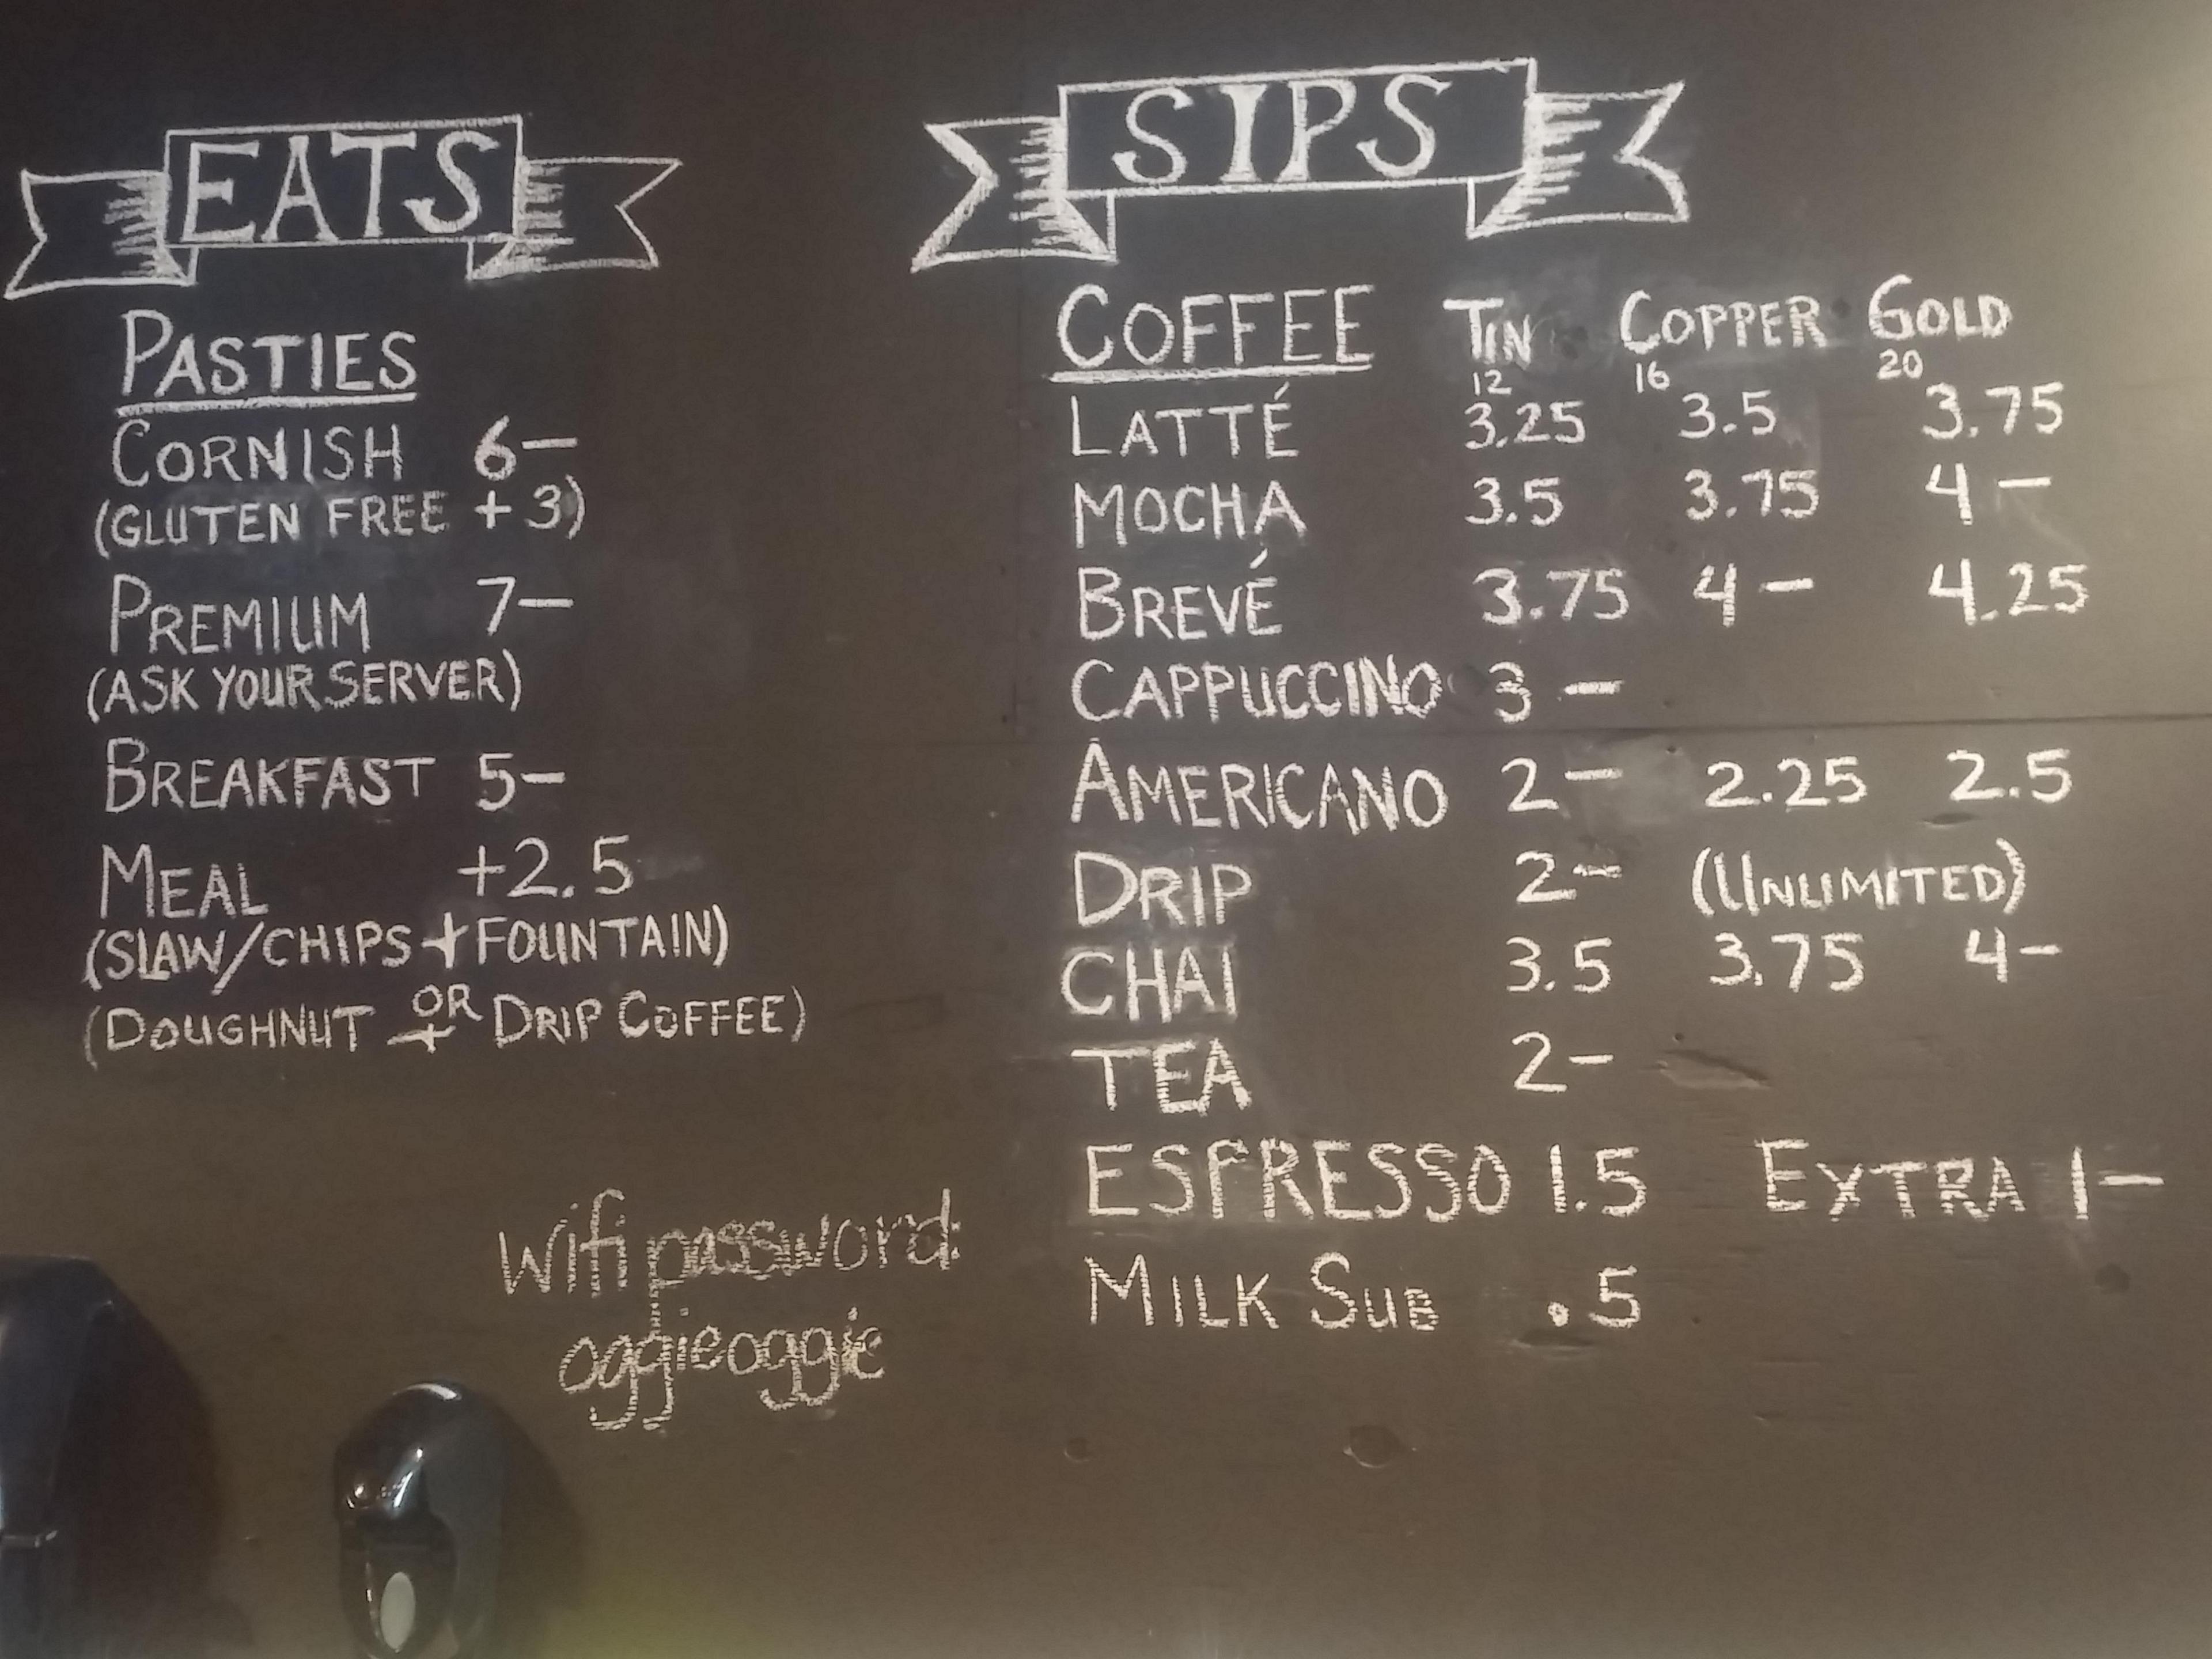 EATS
PASTIES
CORNISH 6—
(GLUTEN FREE +3)
PREMIUM 7—
(ASK YOUR SERVER)
BREAKFAST 5—
MEAL +2.5
(SLAW/CHIPS + FOUNTAIN)
(DOUGHNUT OR + DRIP COFFEE)
Wifi password:
oggieoggie
SIPS
COFFEE TIN COPPER GOLD
12 16 20
LATTÉ 3.25 3.5 3.75
MOCHA 3.5 3.75 4—
BREVÉ 3.75 4— 4.25
CAPPUCCINO 3—
AMERICANO 2— 2.25 2.5
DRIP 2— (UNLIMITED)
CHAI 3.5 3.75 4—
TEA 2—
ESPRESSO 1.5 EXTRA 1—
MILK SUB .5